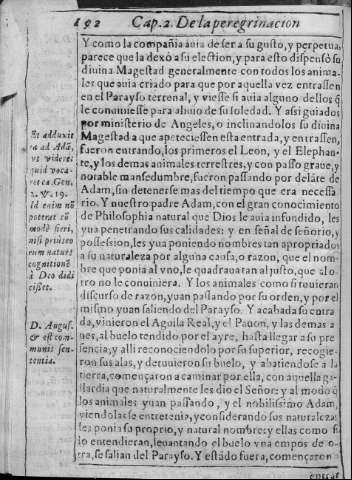 192 Cap. 2. De la peregrinacion
Y como la compañia auia de ser a su gusto, y perpetua,
parece que la dexò a su eleſtion, y para esto dispensò su
diuina Magestad generalmente con todos los anima-
les que auia criado para que por aquella vez entrassen
en el Parayso terrenal, y viesse si auia alguno dellos q̃
le conuiniesse para aliuio de su soledad. Y assi guiados
por ministerio de Angeles, o inclinandolos su diuina
Magestad a que apeteciessen esta entrada, y entrassen,
fueron entrando, los primeros el Leon, y el Elephan-
te, y los demas animales terrestres, y con passo graue, y
notable mansedumbre, fueron passando por delãte de
Adam, sin detenerse mas del tiempo que era necessa-
rio. Y nuestro padre Adam, con el gran conocimiento
de Philosophia natural que Dios le auia infundido, les
yua penetrando sus calidades: y en señal de señorio, y
possession, les yua poniendo nombres tan apropriados
a su naturaleza por alguna causa, o razon, que el nom-
bre que ponia al vno, le quadraua tan al justo, que al o-
tro no le conuiniera. Y los animales como si tuuieran
discurso de razon, yuan passando por su orden, y por el
mismo yuan saliendo del Parayso. Y acabada su entra
da, vinieron el Aguila Real, y el Pauon, y las demas a
ues, al buelo tendido por el ayre, hasta llegar a su pre
sencia, y alli reconociendolo por su superior, recogie-
ron sus alas, y detuuieron su buelo, y abatiendose a la
tierra, començaron a caminar por ella, con aquella ga-
llardia que naturalmente les dio el Señor: y al modo q̃
los animales yuan passando, y el nobilissimo Adam
viendolas se entretenia, y considerando sus naturalezas
les ponia su proprio, y natural nombre: y ellas como si
lo entendieran, leuantando el buelo vna empos de o-
tra, se salian del Parayso. Y estãdo fuera, començaron a
Et adduxit
ea ad Adã,
vt videret
quid voca-
ret ea. Gen.
2. v. 19.
Id enim nõ
poterat cõ
modè fieri,
nisi priusco
rum naturę
cognitionẽ
à Deo didi
cisset.
D. Augus.
& est com-
munis sen-
tentia.